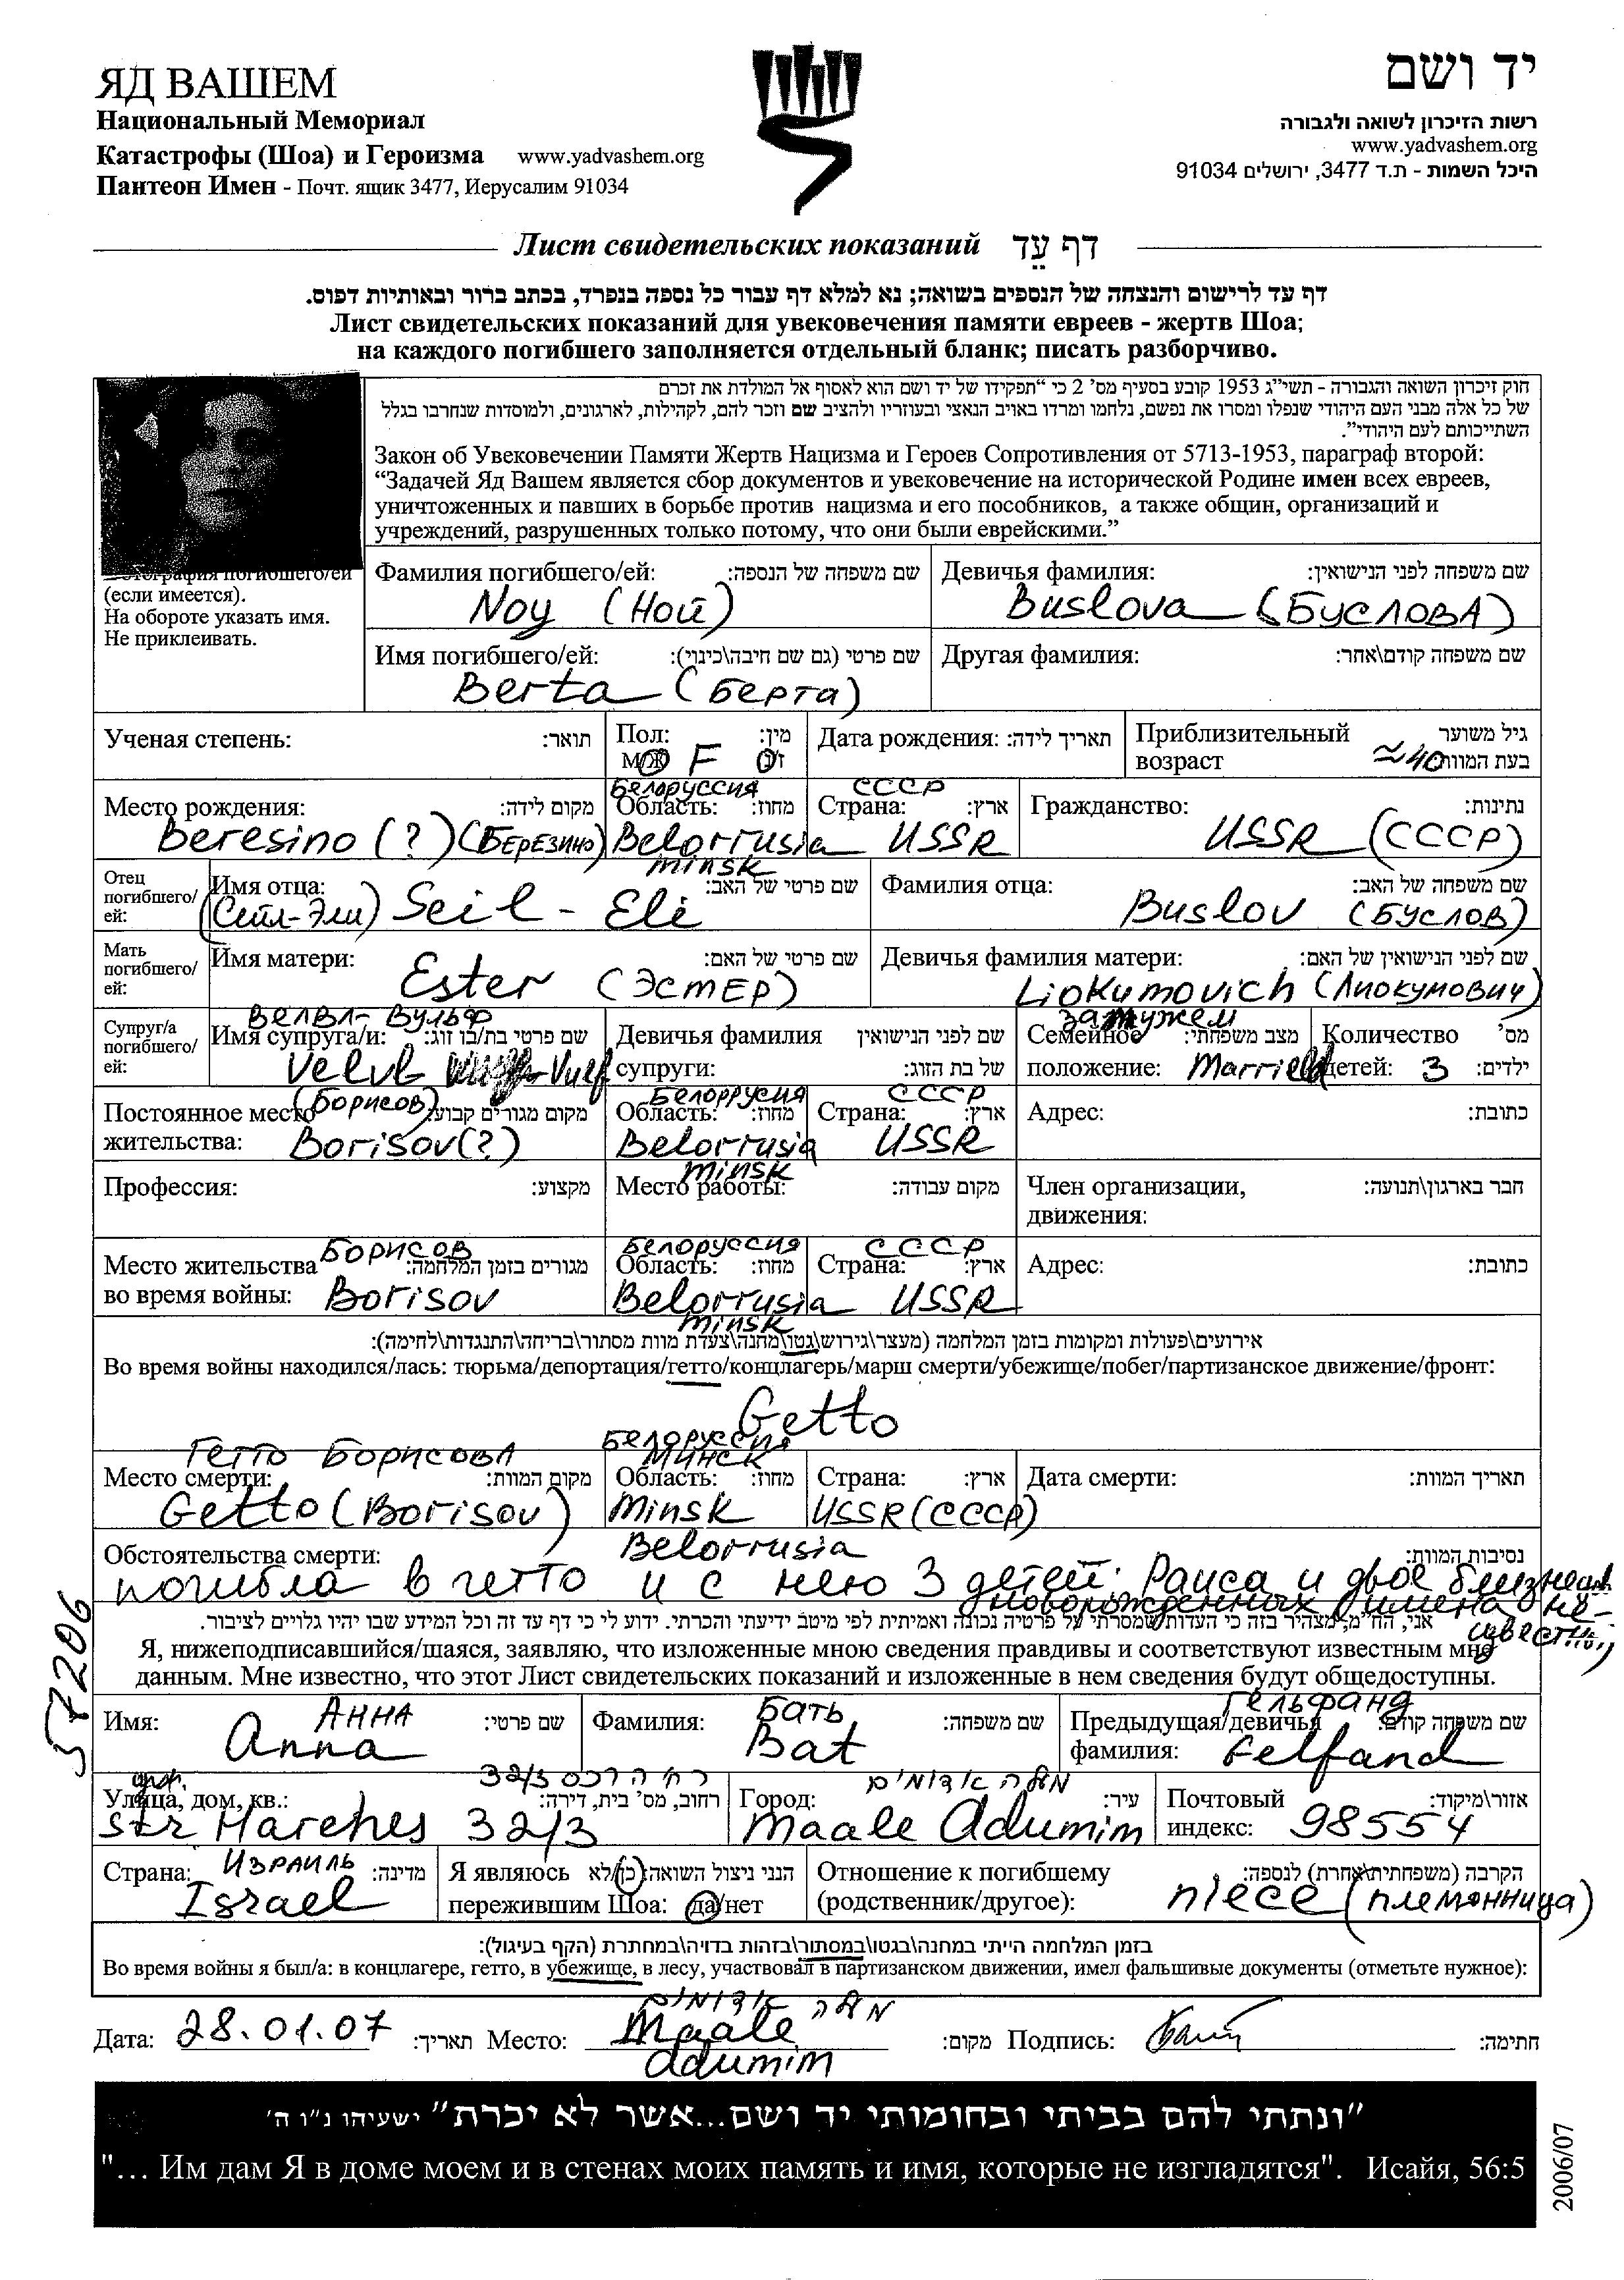 ЯД ВАШЕМ
Национальный Мемориал
Катастрофы (Шоа) и Героизма www.yadvashem.org
Пантеон Имен - Почт. ящик 3477, Иерусалим 91034
יד ושם
רשות הזיכרון לשואה ולגבורה
www.yadvashem.org
היכל השמות - ת.ד 3477, ירושלים 91034
Лист свидетельских показаний דף עֵד
דף עד לרישום והנצחה של הנספים בשואה; נא למלא דף עבור כל נספה בנפרד, בכתב ברור ובאותיות דפוס.
Лист свидетельских показаний для увековечения памяти евреев - жертв Шоа;
на каждого погибшего заполняется отдельный бланк; писать разборчиво.
חוק זיכרון השואה והגבורה - תשי"ג 1953 קובע בסעיף מס' 2 כי "תפקידו של יד ושם הוא לאסוף אל המולדת את זכרם
של כל אלה מבני העם היהודי שנפלו ומסרו את נפשם, נלחמו ומרדו באויב הנאצי ובעוזריו ולהציב שם וזכר להם, לקהילות, לארגונים, ולמוסדות שנחרבו בגלל
השתייכותם לעם היהודי".
Закон об Увековечении Памяти Жертв Нацизма и Героев Сопротивления от 5713-1953, параграф второй:
"Задачей Яд Вашем является сбор документов и увековечение на исторической Родине имен всех евреев,
уничтоженных и павших в борьбе против нацизма и его пособников, а также общин, организаций и
учреждений, разрушенных только потому, что они были еврейскими."
погибшего/ей
(если имеется).
На обороте указать имя.
Не приклеивать.
Фамилия погибшего/ей: שם משפחה של הנספה:
Noy (Ной)
Девичья фамилия: שם משפחה לפני הנישואין:
Buslova (БУСЛОВА)
Имя погибшего/ей: שם פרטי (גם שם חיבה\כינוי):
Berta (Берта)
Другая фамилия: שם משפחה קודם\אחר:
Ученая степень: תואר:
Пол: מין:
М/Ж F ז/נ
Дата рождения: תאריך לידה:
Приблизительный возраст גיל משוער בעת המוות
≈40
Место рождения: מקום לידה:
Beresino (?) (БЕРЕЗИНО)
Белоруссия
Область: מחוז:
Belorrusia
minsk
СССР
Страна: ארץ:
USSR
Гражданство: נתינות:
USSR (СССР)
Отец погибшего/ей:
Имя отца: שם פרטי של האב:
(Сейл-Эли) Seil - Eli
Фамилия отца: שם משפחה של האב:
Buslov (БУСЛОВ)
Мать погибшего/ей:
Имя матери: שם פרטי של האם:
Ester (ЭСТЕР)
Девичья фамилия матери: שם לפני הנישואין של האם:
Liokumovich (Лиокумович)
Супруг/а погибшего/ей:
ВЕЛВЛ- Вульф
Имя супруга/и: שם פרטי בת/בן זוג:
Velvl Vulf
Девичья фамилия супруги: שם לפני הנישואין של בת הזוג:
замужем
Семейное положение: מצב משפחתי:
Married
Количество детей: מס' ילדים:
3
Постоянное место жительства: מקום מגורים קבוע:
(Борисов)
Borisov(?)
Белоррусия
Область: מחוז:
Belorrusia
minsk
СССР
Страна: ארץ:
USSR
Адрес: כתובת:
Профессия: מקצוע:
Место работы: מקום עבודה:
Член организации, движения: חבר בארגון\תנועה:
Место жительства во время войны: מגורים בזמן המלחמה:
БОРИСОВ
Borisov
Белоруссия
Область: מחוז:
Belorrusia
minsk
СССР
Страна: ארץ:
USSR
Адрес: כתובת:
אירועים\פעולות ומקומות בזמן המלחמה (מעצר\גירוש\גטו\מחנה\צעדת מוות מסתור\בריחה\התנגדות\לחימה):
Во время войны находился/лась: тюрьма/депортация/гетто/концлагерь/марш смерти/убежище/побег/партизанское движение/фронт:
Getto
Гетто БОРИСОВА
Место смерти: מקום המוות:
Getto (Borisov)
Белоруссия
Минск
Область: מחוז:
Minsk
Belorrusia
Страна: ארץ:
USSR (СССР)
Дата смерти: תאריך המוות:
Обстоятельства смерти: נסיבות המוות:
погибла в гетто и с нею 3 детей: Раиса и двое близнецов
новорожденных имена не-
известны
אני, הח"מ, מצהיר בזה כי העדות שמסרתי על פרטיה נכונה ואמיתית לפי מיטב ידיעתי והכרתי. ידוע לי כי דף עד זה וכל המידע שבו יהיו גלויים לציבור.
Я, нижеподписавшийся/шаяся, заявляю, что изложенные мною сведения правдивы и соответствуют известным мне
данным. Мне известно, что этот Лист свидетельских показаний и изложенные в нем сведения будут общедоступны.
57206
Имя: שם פרטי:
Анна
Anna
Фамилия: שם משפחה:
Бать
Bat
Предыдущая/девичья фамилия: שם משפחה קודם:
Гельфанд
Gelfand
Улица, дом, кв.: רחוב, מס' בית, דירה:
רח' הרכס 32/3
str Harches 32/3
Город: עיר:
מעלה אדומים
Maale Adumim
Почтовый индекс: אזור\מיקוד:
98554
Страна: מדינה:
ИЗРАИЛЬ
Israel
Я являюсь пережившим Шоа: да/нет הנני ניצול השואה: כן/לא
Отношение к погибшему (родственник/другое): הקרבה (משפחתית\אחרת) לנספה:
niece (племянница)
בזמן המלחמה הייתי במחנה\בגטו\במסתור\בזהות בדויה\במחתרת (הקף בעיגול):
Во время войны я был/а: в концлагере, гетто, в убежище, в лесу, участвовал в партизанском движении, имел фальшивые документы (отметьте нужное):
Дата: 28.01.07 תאריך:
Место: מקום:
מעלה אדומים
Maale
Adumim
Подпись: חתימה:
"ונתתי להם בביתי ובחומותי יד ושם...אשר לא יכרת" ישעיהו נ"ו ה'
"... Им дам Я в доме моем и в стенах моих память и имя, которые не изгладятся". Исайя, 56:5
2006/07